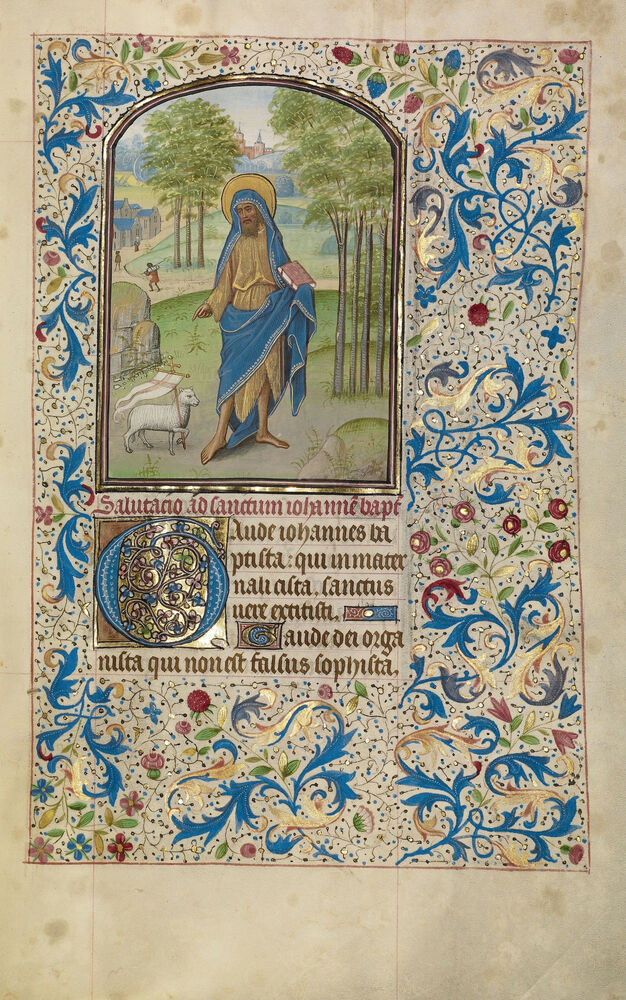 Salutacio ad sanctum iohannē bapt̄
Gaude iohannes ba
ptista: qui in mater
nali cista, sanctus
uere extitisti,
Gaude dei orga
nista qui non est falsus sophista,